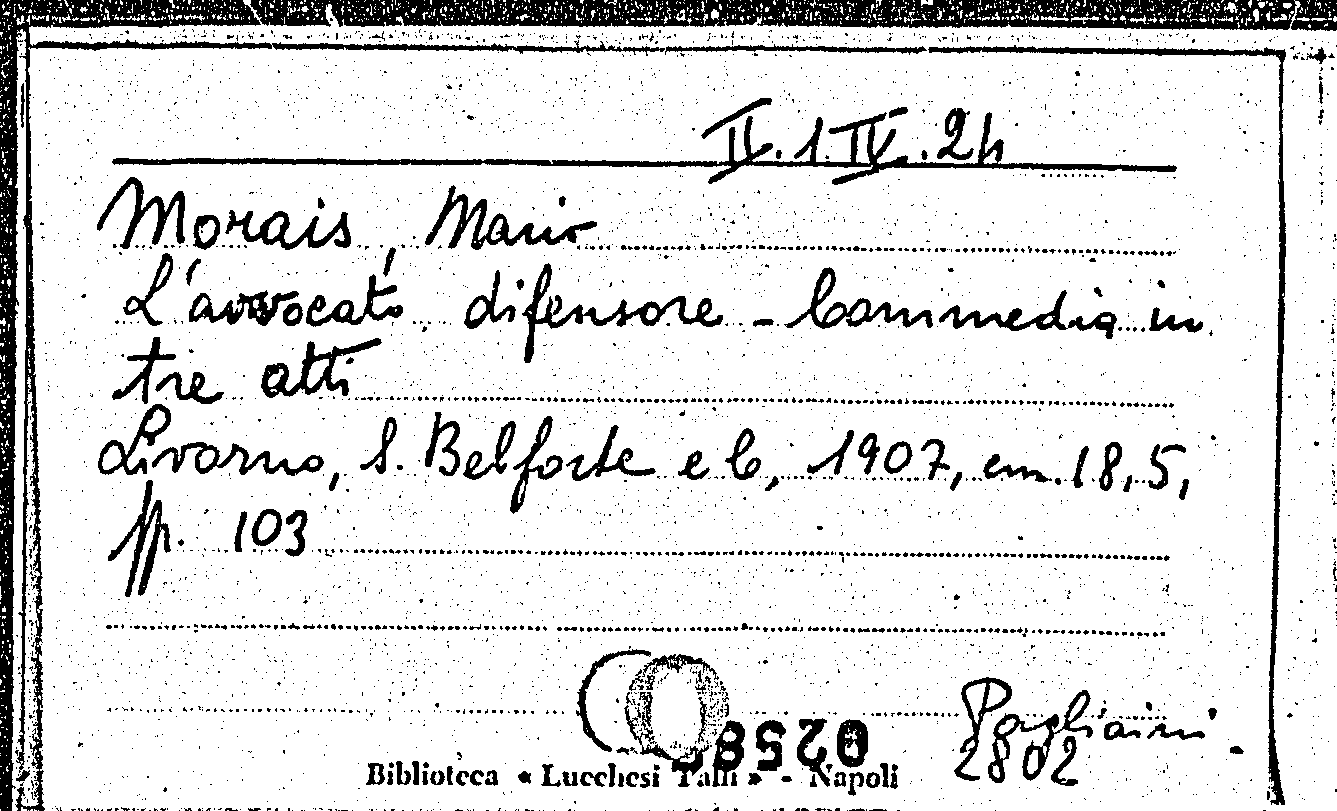 II.1.IV.24
Morais, Mario
L'avvocato difensore - Commedia in
tre atti
Livorno, S. Belforte e C, 1907, cm. 18,5,
pp. 103
Pagliaini
2802
Biblioteca « Lucchesi Palli » - Napoli